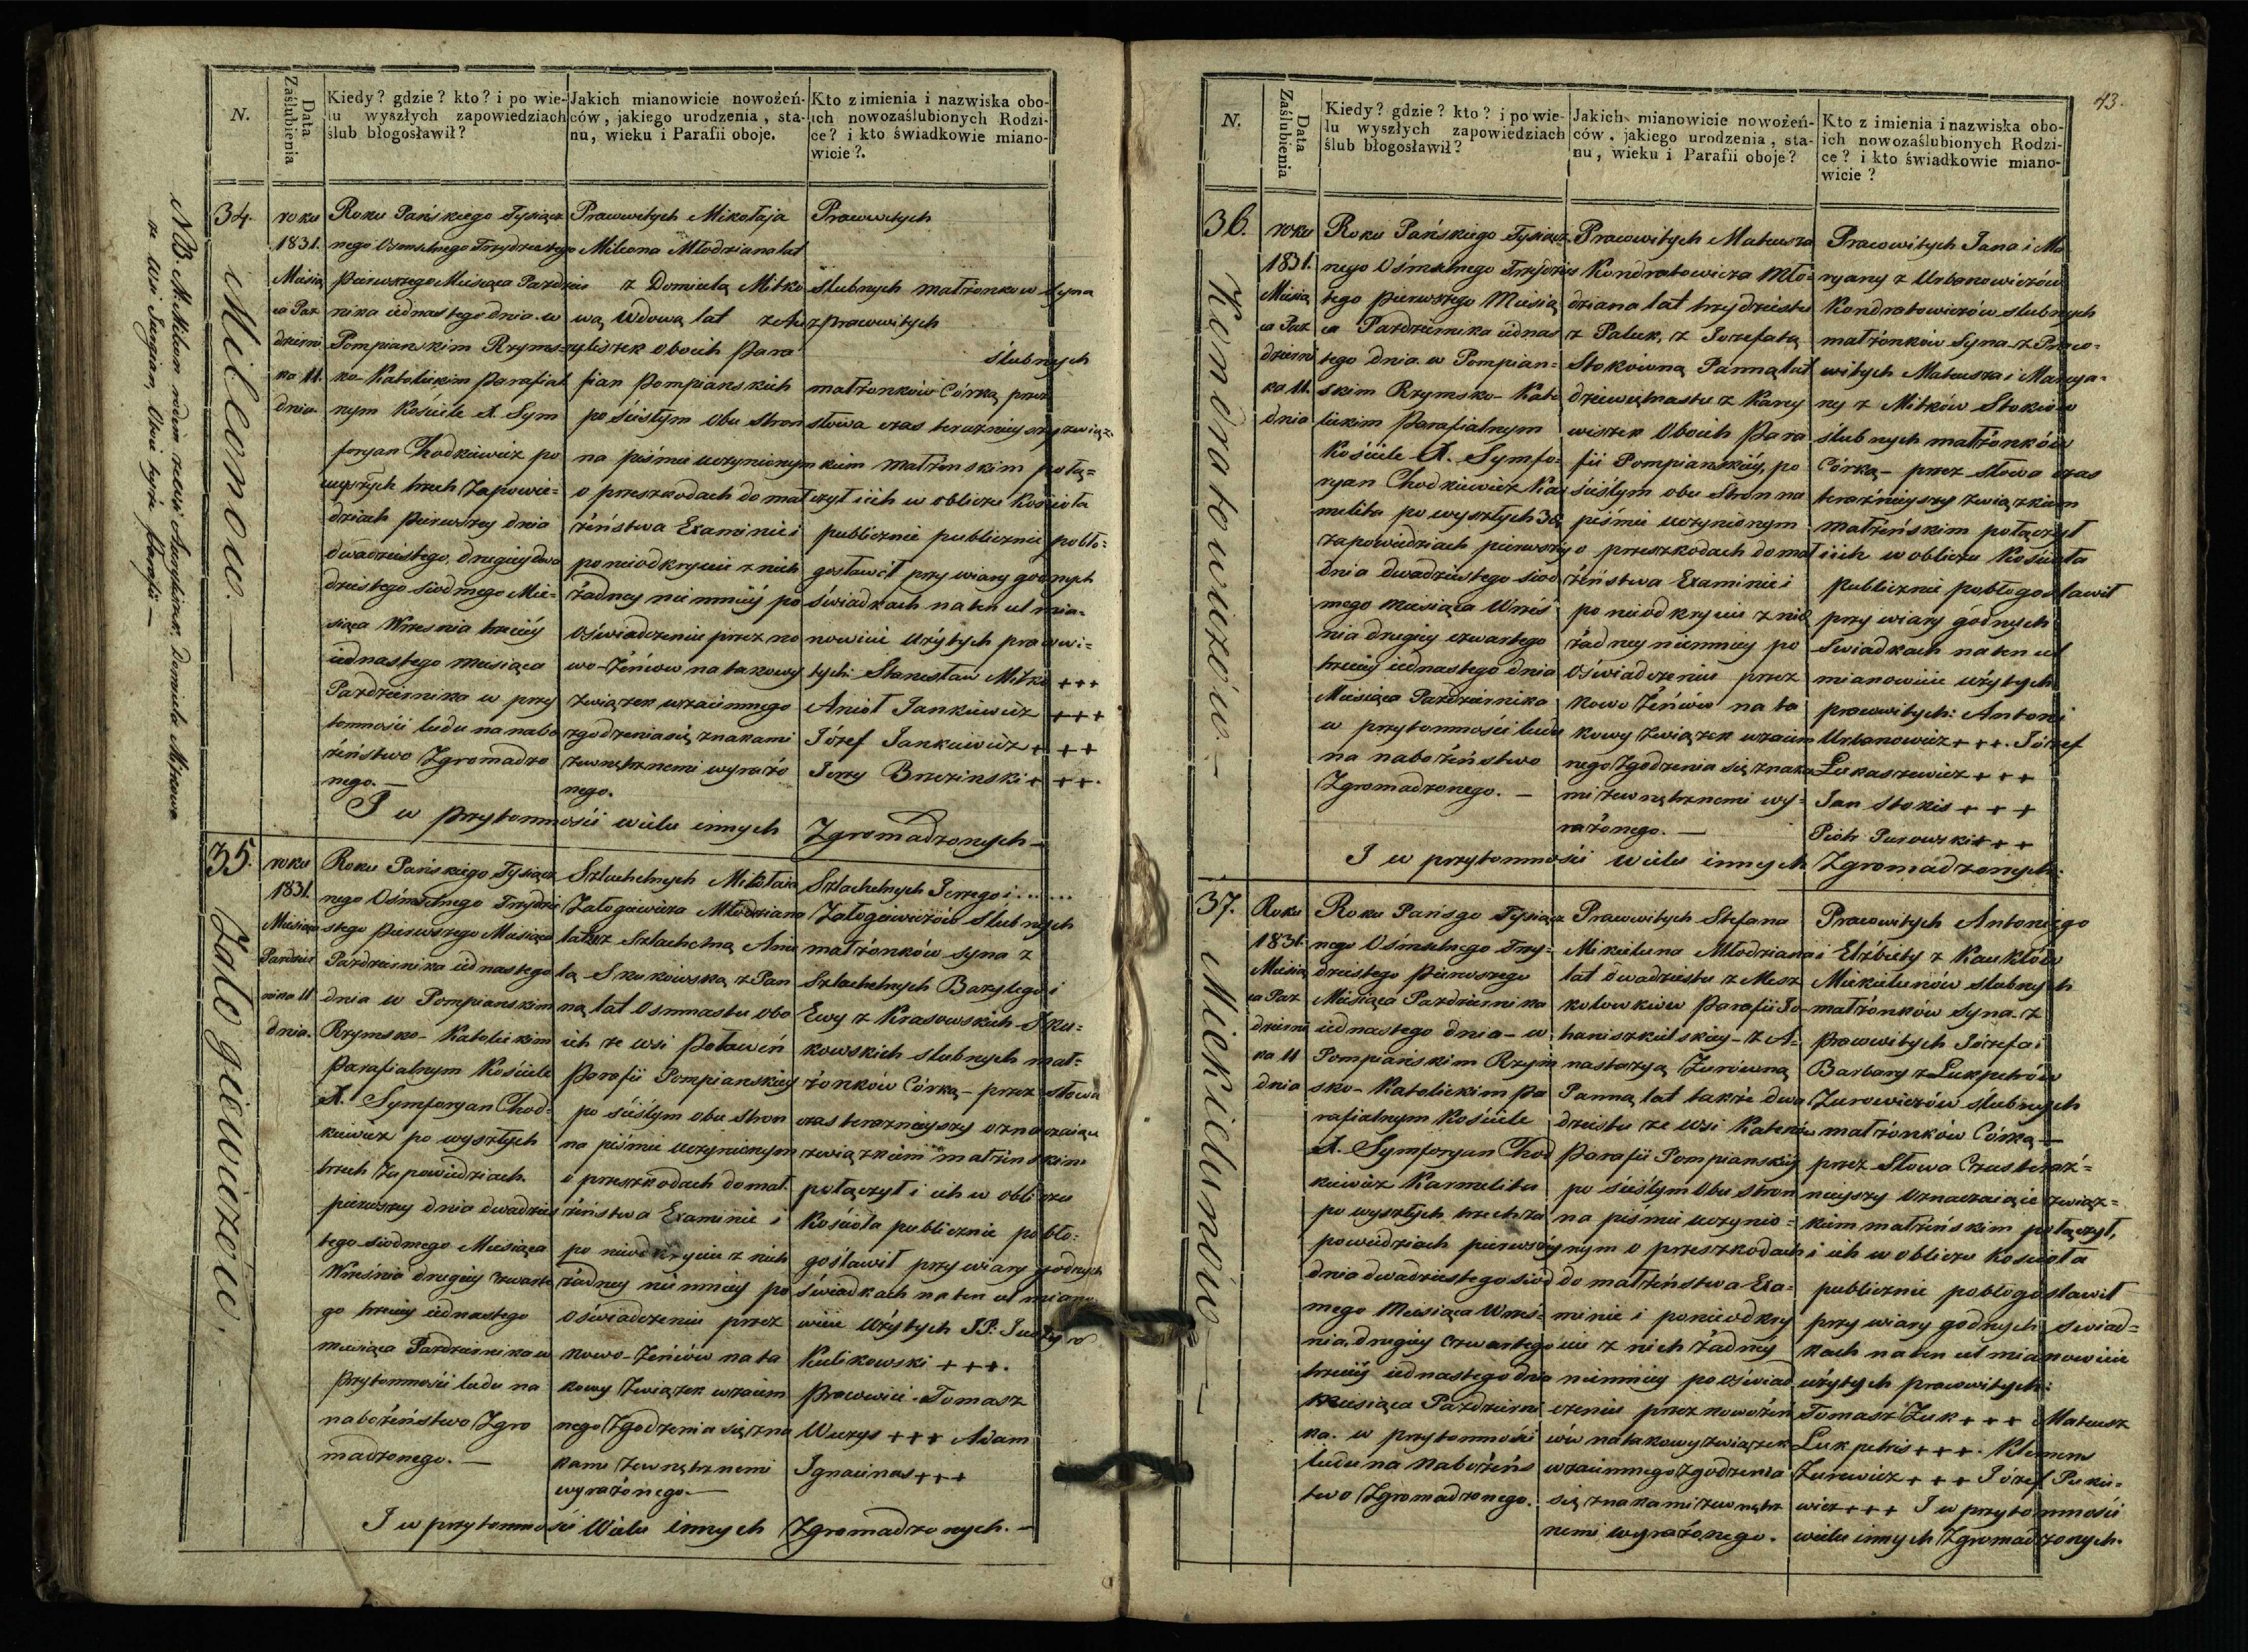 N.
Data Zaślubienia
Kiedy? gdzie? kto? i po wie-
lu wyszłych zapowiedziach
ślub błogosławił?
Jakich mianowicie nowożeń-
ców, jakiego urodzenia, sta-
nu, wieku i Parafii oboje.
Kto z imienia i nazwiska obo-
ich nowozaślubionych Rodzi-
ce? i kto świadkowie miano-
wicie?.
NB. M. Mileon rodem
ze wsi
34.
Mileonow.—
roku
1831.
Miesią
ca Paz
dzierni
ka 11.
dnia
Roku Pańskiego Tysiącz
nego Osmsetnego Trzydziestego
pierwszego Miesiąca Pazdzier
nika iednastego dnia w
Pompianskim Rzyms-
ko-Katolickim parafial
nym Kościele X. Sym
foryan Chodkiewicz po
wyszłych trzech Zapowie-
dziach pierwszey dnia
dwadziestego, drugiey dwa
dziestego siodmego Mie-
siąca Wrzesnia trzeciey
iednastego miesiąca
Pazdziernika w przy
tomności ludu na nabo
żeństwo Zgromadzo
nego.—
Pracowitych Mikołaja
Mileona Młodziana lat
z Domicelą Mitko
wą Wdową lat
oboich para
fian pompianskich
po ścisłym obu stron
na piśmie uczynionym
o przeszkodach do mał
żeństwa Examinie i
po nieodkryciu z nich
żadney nie mniey po
oświadczeniu przez no
wo-żeńcow na takowy
związek wzaiemnego
zgodzenia się znakami
zewnętrznemi wyrażo
nego.
Pracowitych
slubnych małżonkow Syna
z pracowitych
ślubnych
małżonków Córką przez
słowa czas teraznieyszy związ-
kiem małżenskim połą=
czył i ich w obliczu Kościoła
publicznie publicznie pobło-
gosławił przy wiary godnych
świadkach na ten cel mia-
nowicie użytych pracowi-
tych: Stanisław Mitko +++
Anioł Jankiewicz +++
Józef Jankiewicz +++
Jerzy Brzezinski +++.
I w przytomności wielu innych Zgromadzonych—
35.
Załogiewiczów.
roku
1831.
Miesiąca
Pazdzier
nika 11
dnia.
Roku Pańskiego Tysiącz
nego Ośmsetnego Trzydzie
stego pierwszego Miesiąca
Pazdziernika iednastego
dnia w Pompianskim
Rzymsko-Katolickim
parafialnym Kościele
X. Symforyan Chod-
kiewicz po wyszłych
trzech Zapowiedziach
pierwszey dnia dwadzies
tego siodmego Miesiąca
Września drugiey czwarte
go trzeciey iednastego
miesiąca Pazdziernika w
przytomności ludu na
nabożeństwo Zgro
madzonego.—
Szlachetnych Mikołaia
Załogiewicza Młodziana
z Szlachetną Anie
lą Skukowską z Pan
ną lat Osmnastu obo
ich ze wsi Poławeń
Parafii Pompianskiey
po ścisłym obu stron
na piśmie uczynionym
o przeszkodach do mał
żeństwa Examinie i
po nieodkryciu z nich
żadney nie mniey po
oświadczeniu przez
nowo-żeńców na ta
kowy związek wzaiem
nego Zgodzenia się zna
kami zewnętrznemi
wyrażonego—
Szlachetnych Jerzego i ......
Załogiewiczów Slubnych
małżonków syna z
Szlachetnych Bazylego i
Ewy z Krasowskich Sku-
kowskich slubnych mał-
żonków Córką - przez słowa
czas teraznieyszy oznaczaiące
związkiem małżenskim
połączył i ich w obliczu
Kościoła publicznie pobło-
gosławił przy wiary godnych
świadkach na ten cel miano
wicie użytych
Kulikowski +++.
Pracowici Tomasz
Wuzys +++ Adam
Ignacinas +++
I w przytomności Wielu innych Zgromadzonych.—
43.
N.
Data Zaślubienia
Kiedy? gdzie? kto? i po wie-
lu wyszłych zapowiedziach
ślub błogosławił?
Jakich mianowicie nowożeń-
ców, jakiego urodzenia, sta-
nu, wieku i Parafii oboje?
Kto z imienia i nazwiska obo-
ich nowozaślubionych Rodzi-
ce? i kto świadkowie miano-
wicie?
36.
Kondratowiczów—
roku
1831.
Miesią
ca Paz
dzierni
ka 11.
dnia
Roku Pańskiego Tysiącz
nego Ośmsetnego Trzydzies
tego pierwszego Miesią
ca Pazdziernika iednas
tego dnia w Pompian=
skim Rzymsko-Kato
lickim Parafialnym
Kościele X. Symfo-
ryan Chodkiewicz Kar
melita po wyszłych 3ch
zapowiedziach pierwszey
dnia dwadziestego siod
mego miesiąca Wrześ
nia drugiey czwartego
trzeciey iednastego dnia
Miesiąca Pazdziernika
w przytomności ludu
na nabożeństwo
Zgromadzonego.—
Pracowitych Mateusza
Kondratowicza Mło-
dziana lat trzydziestu
z Paluk, z Jozefatą
Stokówną Panną lat
dziewiętnastu z Karey
wiszek Oboich Para
fii Pompianskiey, po
ścisłym obu Stron na
piśmie uczynionym
o przeszkodach do mał
żeństwa Examinie i
po nieodkryciu z nich
żadney niemniey po
oświadczeniu przez
nowo Żeńców na ta
kowy związek wzaiem
nego Zgodzenia się znaka
mi zewnętrznemi wy-
rażonego.—
Pracowitych Jana i Ma
ryany z Urbanowiczów
Kondratowiczów slubnych
małżonków Syna z Praco-
witych Mateusza i Marya-
ny z Mitków Stokiow
ślubnych małżonków
Córką - przez słowa czas
teraźnieyszy związkiem
małżeńskim połączył
i ich w obliczu Kościoła
publicznie pobłogosławił
przy wiary godnych
Swiadkach na ten cel
mianowicie użytych
pracowitych: Antoni
Urbanowicz +++. Józef
Łukaszewicz +++
Jan Stokis +++
Piotr Purowski +++
I w przytomności wielu innych Zgromadzonych.
37.
Mikielunów—
Roku
1831.
Miesią
ca Paz
dzierni
ka 11
dnia
Roku Pańsgo Tysiącz
nego Ośmsetnego Trzy-
dziestego pierwszego
Miesiąca Pazdziernika
iednastego dnia - w
Pompiańskim Rzym
sko-Katolickim Pa
rafialnym Kościele
X. Symforyan Chod
kiewicz Karmelita
po wyszłych trzech za
powiedziach pierwszey
dnia dwadziestego siod
mego Miesiąca Wrześ-
nia, drugiey czwartego
trzeciey iednastego dnia
Miesiąca Pazdzierni
ka. w przytomności
ludu na Nabożeńs
two Zgromadzonego.
Pracowitych Stefana
Mikieluna Młodziana
lat dwadziestu z Mesz
kolowkiow Parafii Jo
haniszkielskiey - z A-
nastazyą Żurówną
Panną lat także dwa
dziestu ze wsi
Parafii Pompianskiey
po ścisłym Obu stron
na piśmie uczynio-
nym o przeszkodach
do małżeństwa Exa-
minie i po nieodkry
ciu z nich żadney
niemniey po oświad
czeniu przez nowożeń
ców na takowy związek
wzaiemnego zgodzenia
się znakami zewnętrz
nemi wyrażonego.
Pracowitych Antoniego
i Elżbiety z Kaukłów
Mikielunów slubnych
małżonków Syna z
Pracowitych Józefa i
Barbary z Łukpetrów
Żurowiczów ślubnych
małżonków Córką—
przez Słowa Czas teraź=
nieyszy Oznaczaiące związ-
kiem małżeńskim połączył,
i ich w obliczu Kościoła
publicznie pobłogosławił
przy wiary godnych swiad=
kach na ten cel mianowicie
użytych pracowitych:
Tomasz Żuk +++ Mateusz
Łukpetris +++. Klemens
Żurewicz +++ Józef Puki-
wicz +++ I w przytomności
wielu innych Zgromadzonych.